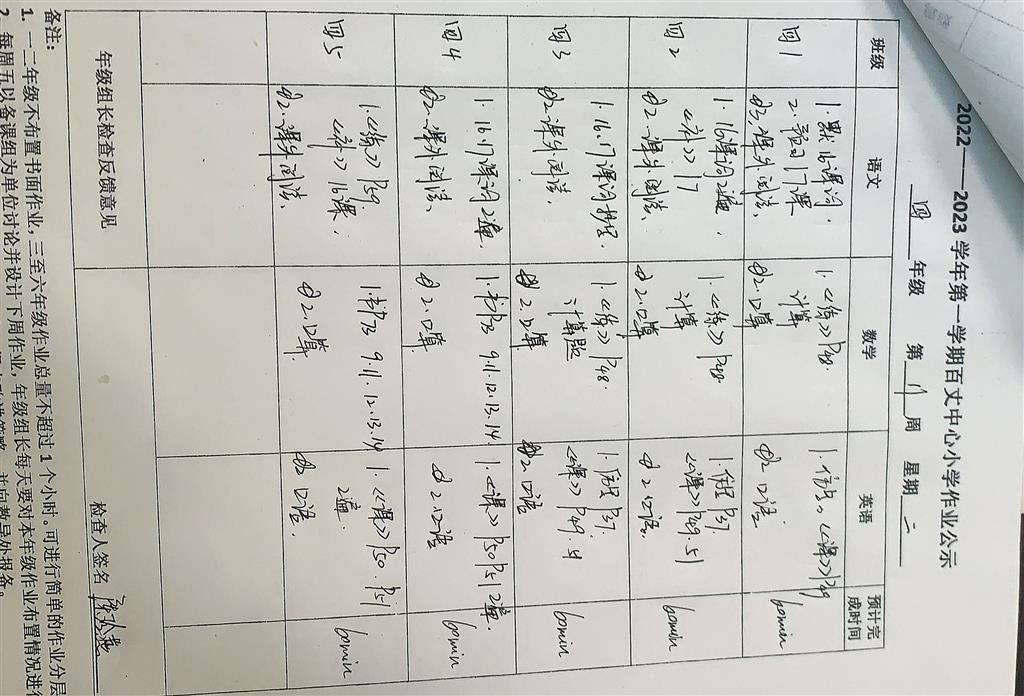 2022——2023 学年第一学期百丈中心小学作业公示
四 年级 第 11 周 星期 二
班级 语文 数学 英语 预计完成时间
四1
1.默16课词.
2.预习17课
3.课外阅读、
1.《练》P48.
计算
2.口算
《课》P49
2.口语
60min
四2
1.16课词2遍,
《补》17
2.课外阅读、
1.《练》P48
计算
2.口算
P37.
《课》P49.51
2.口语.
60min
四3
1.16.17课词
2.课外阅读、
1.《练》P48.
计算题
2.口算
P37.
《课》P49.51
2.口语
60min
四4
1.16.17课词2遍.
2.课外阅读、
1.书P73 9.11.12.13.14
2.口算
1.《课》P50 P51 2遍.
2.口语
60min
四5
1.《练》P59.
《补》16课,
2.课外阅读、
1.书P73 9.11.12.13.14
2.口算
1.《课》P50.P51
2遍
2.口语.
60min
年级组长检查反馈意见
检查人签名
备注:
1. 一二年级不布置书面作业,三至六年级作业总量不超过1个小时。可进行简单的作业分层
2. 每周五以备课组为单位讨论并设计下周作业,年级组长每天要对本年级作业布置情况进行
并向教导处报备。